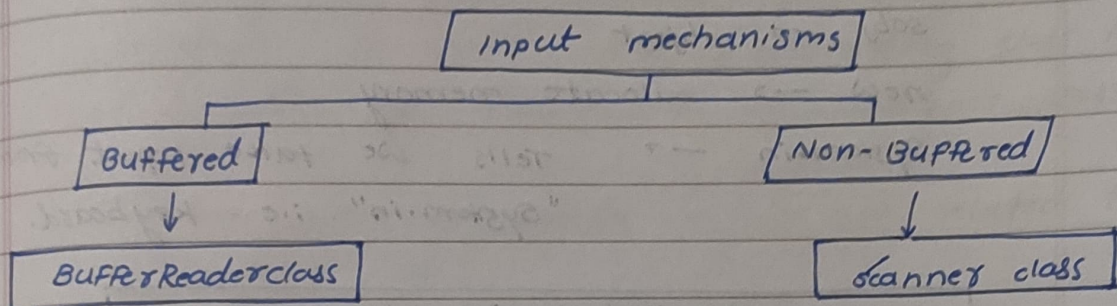 Input mechanisms
Buffered
Non-Buffered
BufferReaderclass
Scanner class